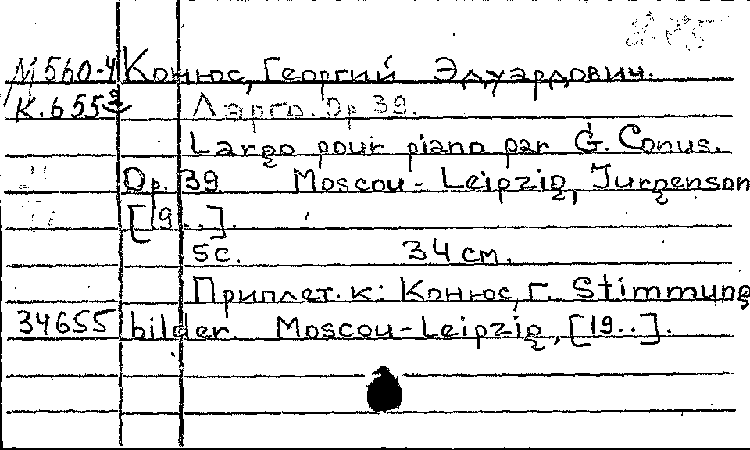 М560-4 Конюс, Георгий Эдуардович.
К.6552 Ларго. Ор 39.
Largo pour piano par G. Conus.
Op. 39 Moscou-Leipzig, Jurgenson
[19..].
5с. 34 см.
Приплет. к: Конюс, Г. Stimmung
34655 bilder. Moscou-Leipzig, [19..].